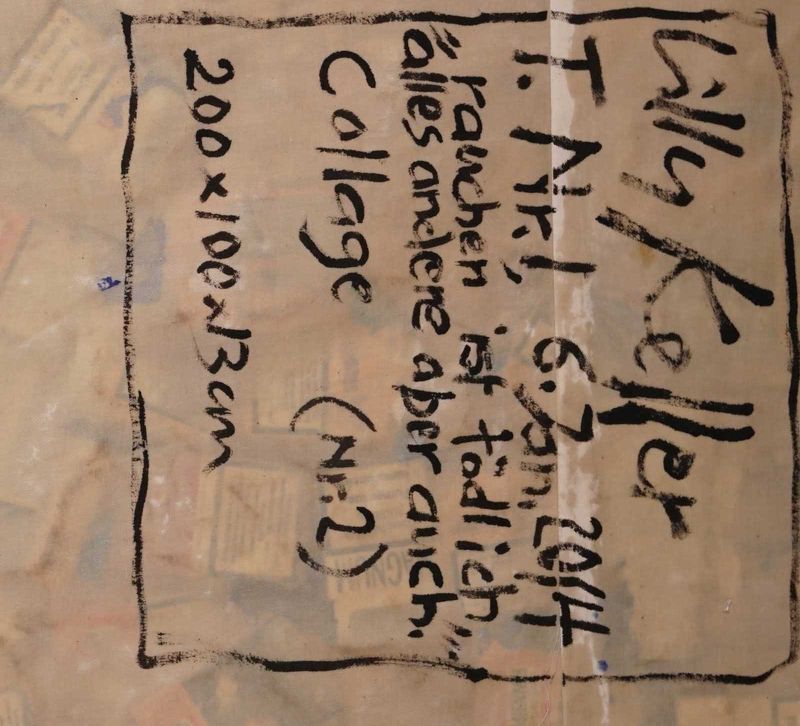 Lilly Keller
T. Nr. 1, 6. Jan, 2014
"rauchen ist tödlich,
alles andere aber auch."
Collage (Nr. 2)
200 x 100 x 13 cm